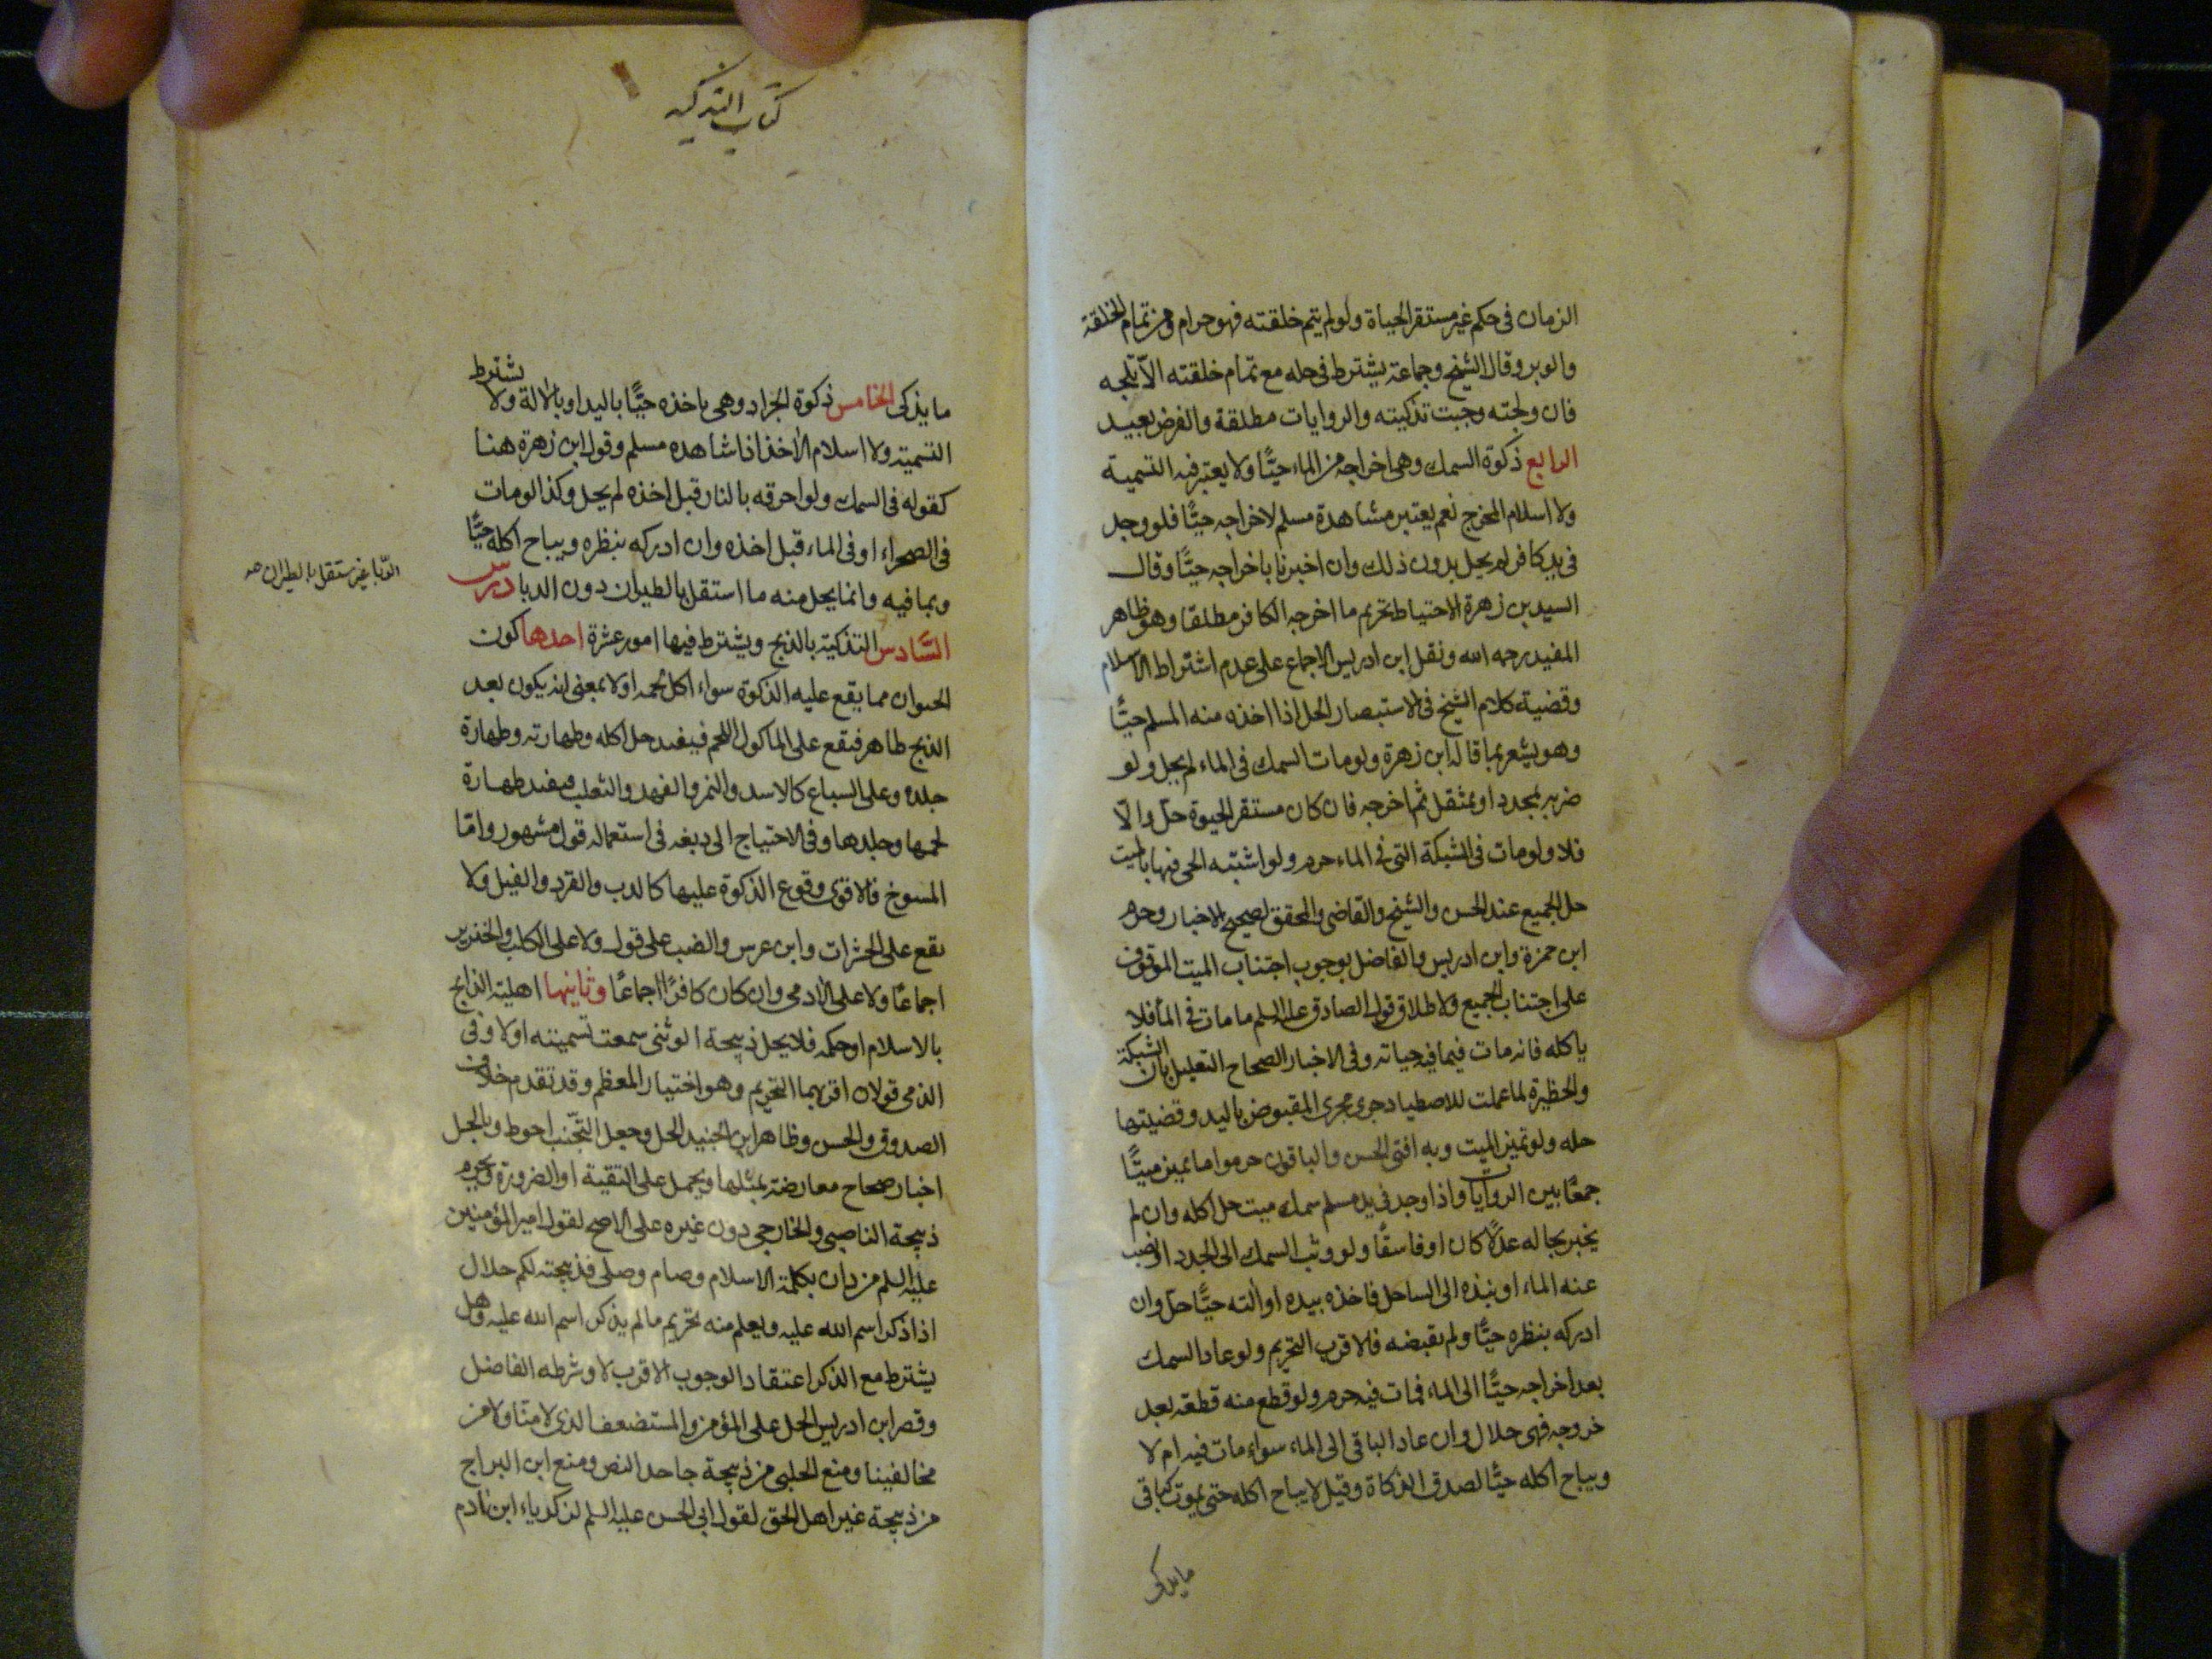 الزمان فى حكم غير مستقر الحياة ولو لم يتم خلقته فهو حرام ومن تمام الخلقة
والوبر وقال الشيخ وجماعة يشترط فى حله مع تمام خلقته الّا تلجه
فان ولجته وجبت تذكيته والروايات مطلقة والفرض بعيد
الرابع ذكوة السمك وهى اخراجه من الماء حيًّا ولا يعتبر فيه التسمية
ولا اسلام المخرج نعم يعتبر مشاهدة مسلم لاخراجه حيًّا فلو وجد
فى يد كافر لم يحل بدون ذلك وان اخبرنا باخراجه حيًّا وقال
السيد بن زهرة الاحتياط تحريم ما اخرجه الكافر مطلقا وهو ظاهر
المفيد رحمه الله ونقل ابن ادريس الاجماع على عدم اشتراط الاسلام
وقضية كلام الشيخ فى الاستبصار الحل اذا اخذه منه المسلم حيًّا
وهو يشعر بما قاله ابن زهرة ولو مات السمك فى الماء لم يحل ولو
ضربه بمحدد او بمثقل ثم اخرجه فان كان مستقر الحيوة حلّ والّا
فلا ولو مات فى الشبكة التى فى الماء حرم ولو اشتبه الحى فيها بالميت
حل الجميع عند الحسن والشيخ والقاضى والمحقق لصحيح الاخبار وحرم
ابن حمزة وابن ادريس والفاضل بوجوب اجتناب الميت الموقوف
على اجتناب الجميع ولاطلاق قول الصادق عليه السلم ما مات فى الماء فلا
ياكله فانه مات فيما فيه حياته وفى الاخبار الصحاح التعليل بان الشبكة
والحظيرة لما عملت للاصطياد جرى مجرى المقبوض باليد وقضيتها
حله ولو تميز الميت وبه افتى الحسن والباقون حرموا ما تميز ميتًا
جمعًا بين الروايات واذا وجد فى يد مسلم سمك ميت حل اكله وان لم
يخبر بحاله عدلًا كان او فاسقًا ولو وثب السمك الى الجدد او نضب
عنه الماء او نبذه الى الساحل فاخذه بيده او آلته حيًّا حلّ وان
ادركه بنظره حيًّا ولم يقبضه فالاقرب التحريم ولو عاد السمك
بعد اخراجه حيًّا الى الماء فمات فيه حرم ولو قطع منه قطعة بعد
خروجه فهى حلال وان عاد الباقى الى الماء سواء مات فيه ام لا
ويباح اكله حيًّا لصدق الذكاة وقيل لا يباح اكله حتى يموت كباقى
ما يذكى
كتاب التذكيه
ما يذكى الخامس ذكوة الجراد وهى باخذه حيًّا باليد او بالالة ولا يشترط
التسمية ولا اسلام الاخذ اذا شاهده مسلم وقول ابن زهرة هنا
كقوله فى السمك ولو احرقه بالنار قبل اخذه لم يحل وكذا لو مات
فى الصحراء او فى الماء قبل اخذه وان ادركه بنظره ويباح اكله حيًّا
وبما فيه وانما يحل منه ما استقل بالطيران دون الدبا درس
الدّبا غير مستقل بالطيران
السّادس التذكية بالذبح ويشترط فيها امور عشرة احدها كون
الحيوان مما يقع عليه الذكوة سواء اكل لحمه او لا بمعنى انه يكون بعد
الذبح طاهر فتقع على الماكول اللحم فيفيد حل اكله وطهارته وطهارة
جلده وعلى السباع كالاسد والنمر والفهد والثعلب فيفيد طهارة
لحمها وجلدها وفى الاحتياج الى دبغه فى استعماله قول مشهور وامّا
المسوخ فالاقوى وقوع الذكوة عليها كالدب والقرد والفيل ولا
يقع على الحشرات وابن عرس والضب على قول ولا على الكلب والخنزير
اجماعًا ولا على الادمى وان كان كافرًا اجماعًا وثانيها اهلية الذابح
بالاسلام او حكمه فلا يحل ذبيحة الوثنى سمعت تسميته او لا وفى
الذمى قولان اقربهما التحريم وهو اختيار المعظم وقد تقدم خلاف
الصدوق والحسن وظاهر ابن الجنيد الحل وجعل التجّنب احوط وبالحل
اخبار صحاح معارضة بمثلها ويحمل على التقية او الضرورة ويحرم
ذبيحة الناصبى والخارجى دون غيره على الاصح لقول امير المؤمنين
عليه السلم من دان بكلمة الاسلام وصام وصلى فذبيحته لكم حلال
اذا ذكر اسم الله عليه ويعلم منه تحريم ما لم يذكر اسم الله عليه وهل
يشترط مع الذكر اعتقاد الوجوب الاقرب لا وشرطه الفاضل
وقصر ابن ادريس الحل على المؤمن والمستضعف الذى لا منّا ولا من
مخالفينا ومنع الحلبى من ذبيحة جاحد النص ومنع ابن البراج
من ذبيحة غير اهل الحق لقول ابى الحسن عليه السلم لزكرياء ابن ادم